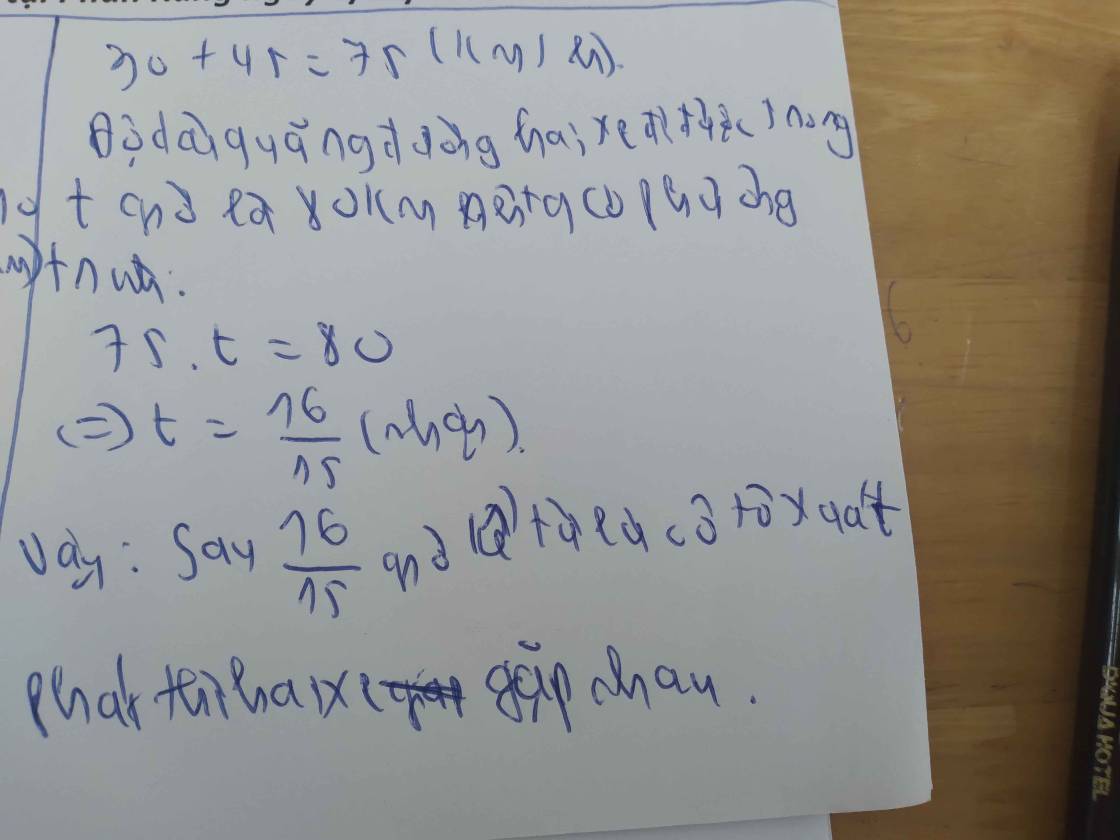 30 + 45 = 75 (km/h).
Độ dài quãng đường hai xe đi được trong
t giờ là 80km nên ta có phương
trình:
75.t = 80
(=) t = 16/15 (nhận).
Vậy: Sau 16/15 giờ kể từ lúc ô tô xuất
phát thì hai xe gặp nhau.
HOTEL